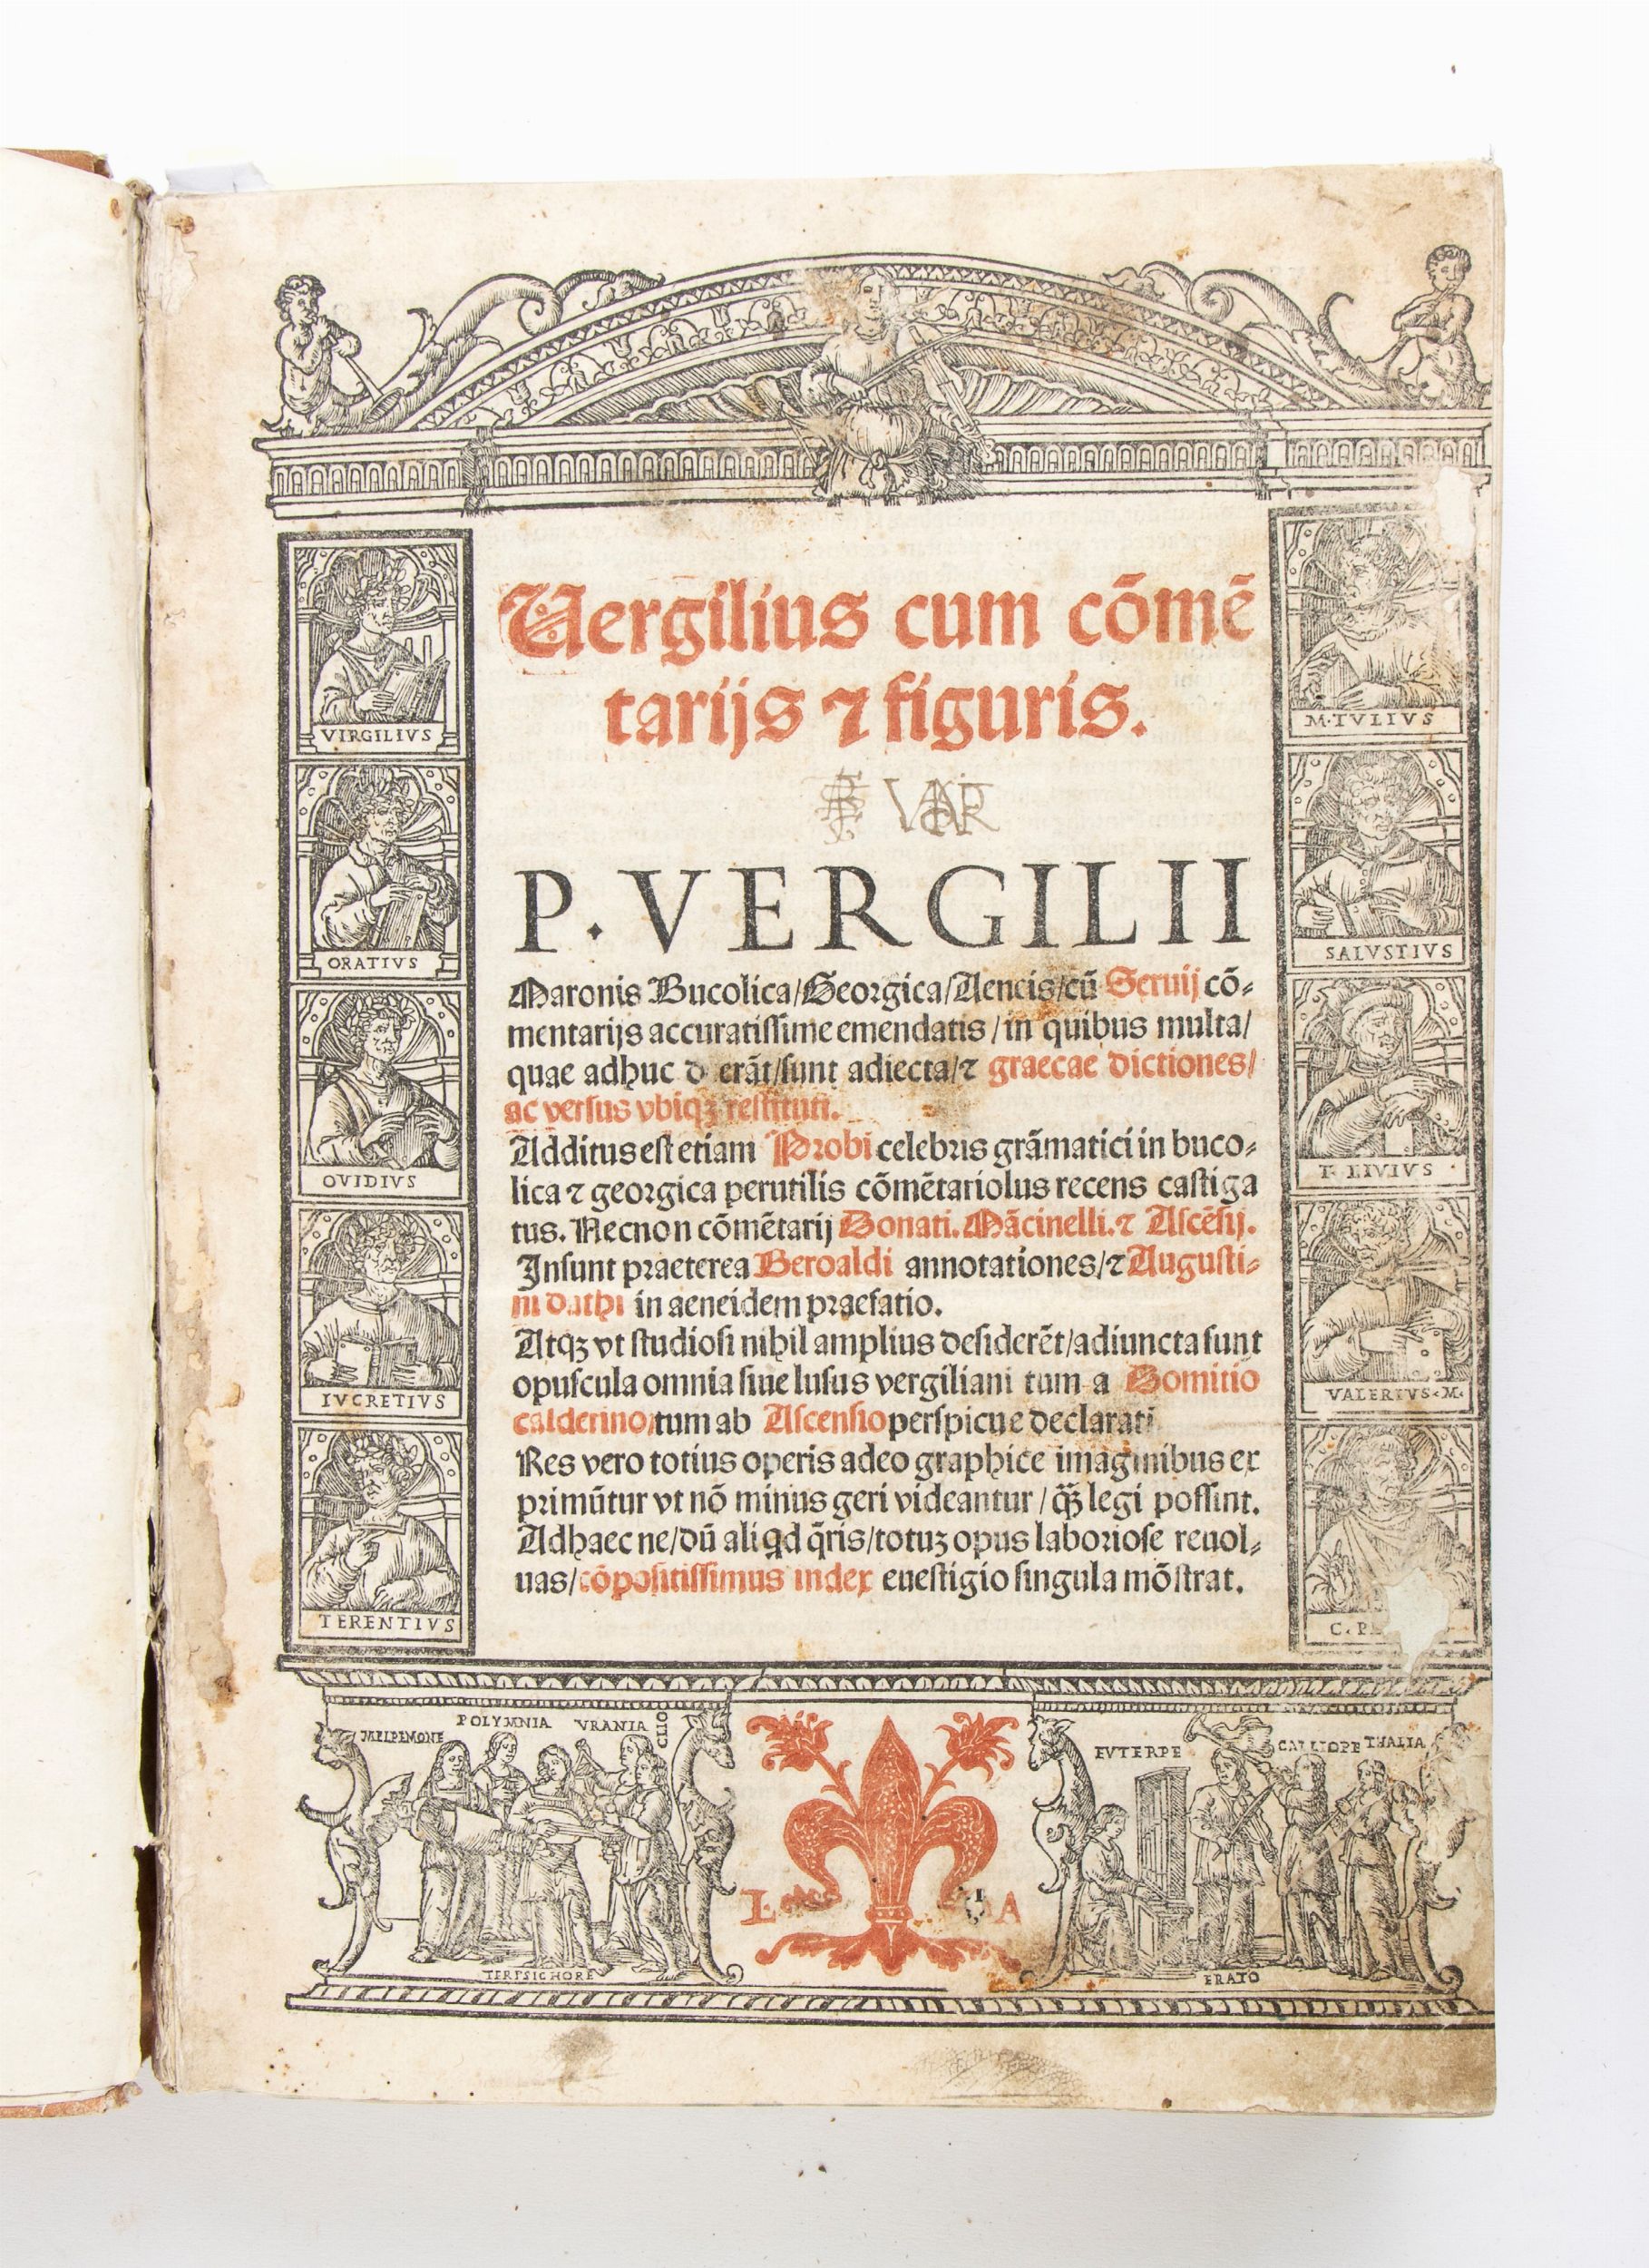 Uergilius cum cōmē
tarijs ⁊ figuris.
P. VERGILII
Maronis Bucolica/Georgica/Aeneis/cū Seruij cō⸗
mentarijs accuratissime emendatis/in quibus multa/
quae adhuc d erāt/sunt adiecta/⁊ graecae dictiones/
ac versus vbiqꝫ restituti.
Additus est etiam Probi celebris grāmatici in buco⸗
lica ⁊ georgica perutilis cōmētariolus recens castiga
tus. Necnon cōmētarij Donati. Mācinelli. ⁊ Ascēsij.
Insunt praeterea Beroaldi annotationes/⁊ Augusti⸗
ni dathi in aeneidem praefatio.
Atqꝫ vt studiosi nihil amplius desiderēt/adiuncta sunt
opuscula omnia siue lusus vergiliani tum a Domitio
calderino/tum ab Ascensio perspicue declarati
Res vero totius operis adeo graphice imaginibus ex
primūtur vt nō minus geri videantur/ꝙ̄ legi possint.
Adhaec ne/dū aliqd q̄ris/totuꝫ opus laboriose reuol⸗
uas/cōpositissimus index euestigio singula mōstrat.
VIRGILIVS
ORATIVS
OVIDIVS
IVCRETIVS
TERENTIVS
M·TVLIVS
SALVSTIVS
T· LIVIVS ·
VALERIVS·M·
C. P
MELPEMONE
POLYMNIA
VRANIA
CLIO
TERPSICHORE
L A
EVTERPE
CALLIOPE
THALIA
ERATO